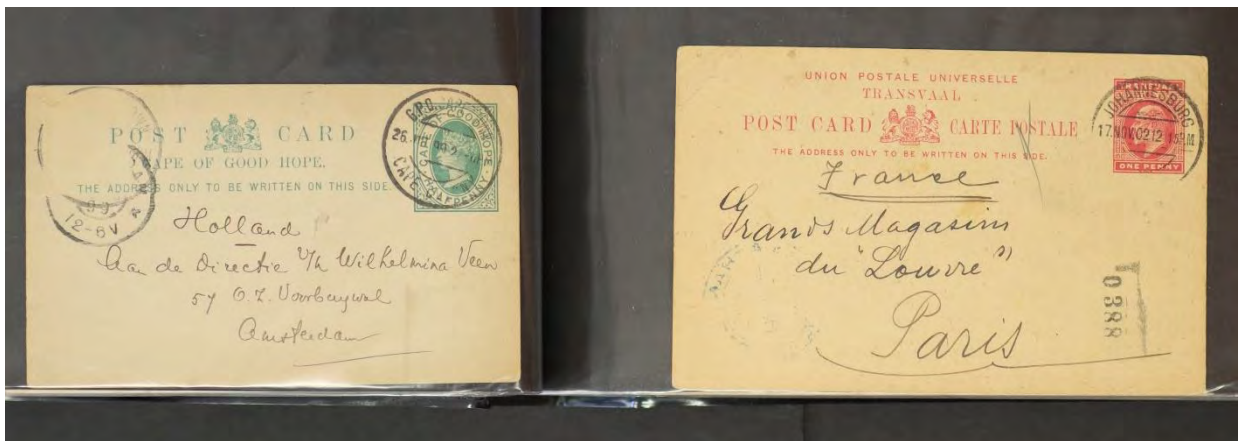 POST CARD
CAPE OF GOOD HOPE.
THE ADDRESS ONLY TO BE WRITTEN ON THIS SIDE.
G.P.O.
CAPE OF GOOD HOPE
HALFPENNY
99
12-6V
Holland
Aan de Directie v/h Wilhelmina Veen
57 O.Z. Voorburgwal
Amsterdam
UNION POSTALE UNIVERSELLE
TRANSVAAL
POST CARD CARTE POSTALE
THE ADDRESS ONLY TO BE WRITTEN ON THIS SIDE.
JOHANNESBURG
17.NOV.02 12
ONE PENNY
France
Grands Magasins
du "Louvre"
Paris
0388